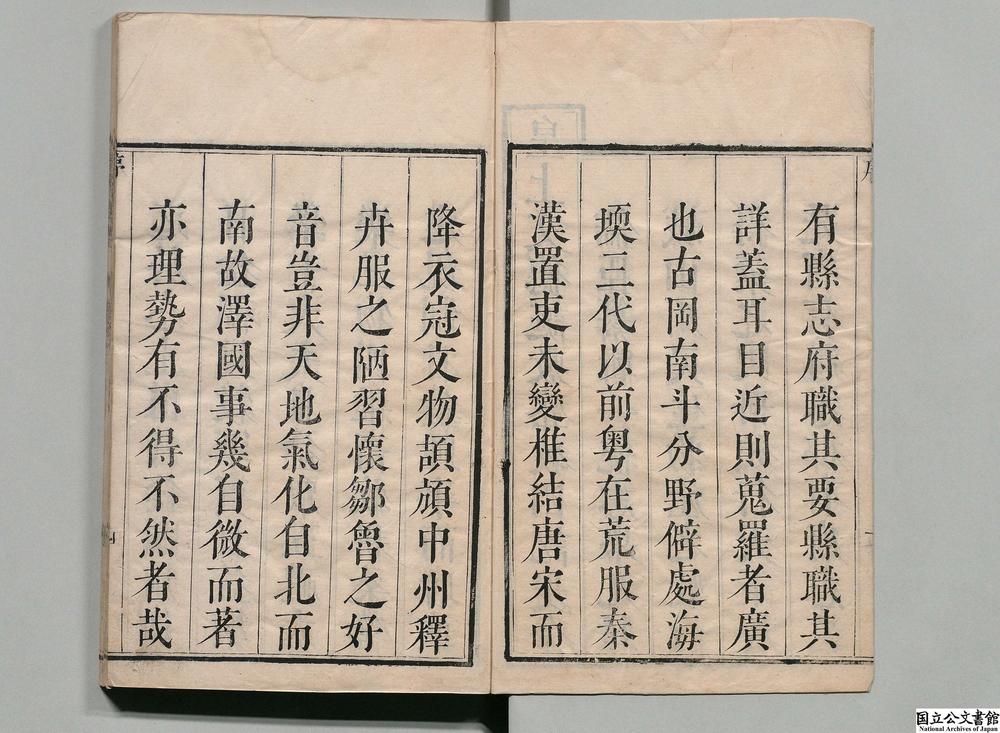 有縣志府職其要縣職其
詳蓋耳目近則蒐羅者廣
也古岡南斗分野僻處海
堧三代以前粤在荒服秦
漢置吏未變椎結唐宋而
降衣冠文物頡頏中州釋
卉服之陋習懷鄒魯之好
音豈非天地氣化自北而
南故澤國事幾自微而著
亦理勢有不得不然者哉
国立公文書館
National Archives of Japan